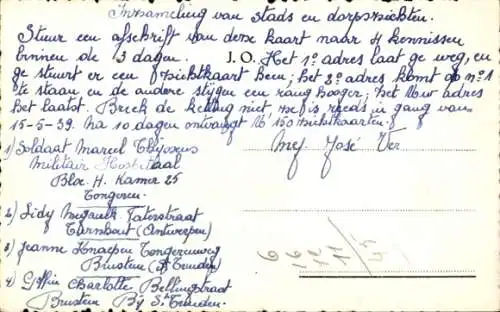 Inzameling van stads en dorpszichten.
Stuur een afschrift van deze kaart naar 4 kennissen
binnen de 3 dagen. I.O. Het 1e adres laat ge weg, en
ge stuurt er een zichtkaart heen; het 2e adres komt op no 1
te staan en de andere stijgen een rang hooger; het Uwe adres
het laatst. Breek de ketting niet ze is reeds in gang van
15-5-39. na 10 dagen ontvangt U 150 zichtkaarten.
1) Soldaat Marcel Thijssens
Mej José Ver
Militair Hospitaal
Bloc. H. Kamer 25
Tongeren.
2) Lidy Paterstraat
Turnhout (Antwerpen)
3) Jeanne Knaepen Tongerenweg
Brustem (St Truiden)
4) Charlotte Bellingstraat
Brustem Bij St Truiden.